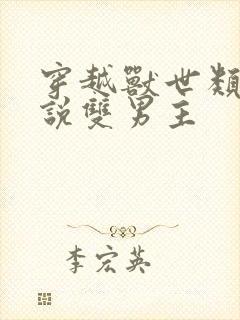 穿越獸世類
說雙男主
李宏英